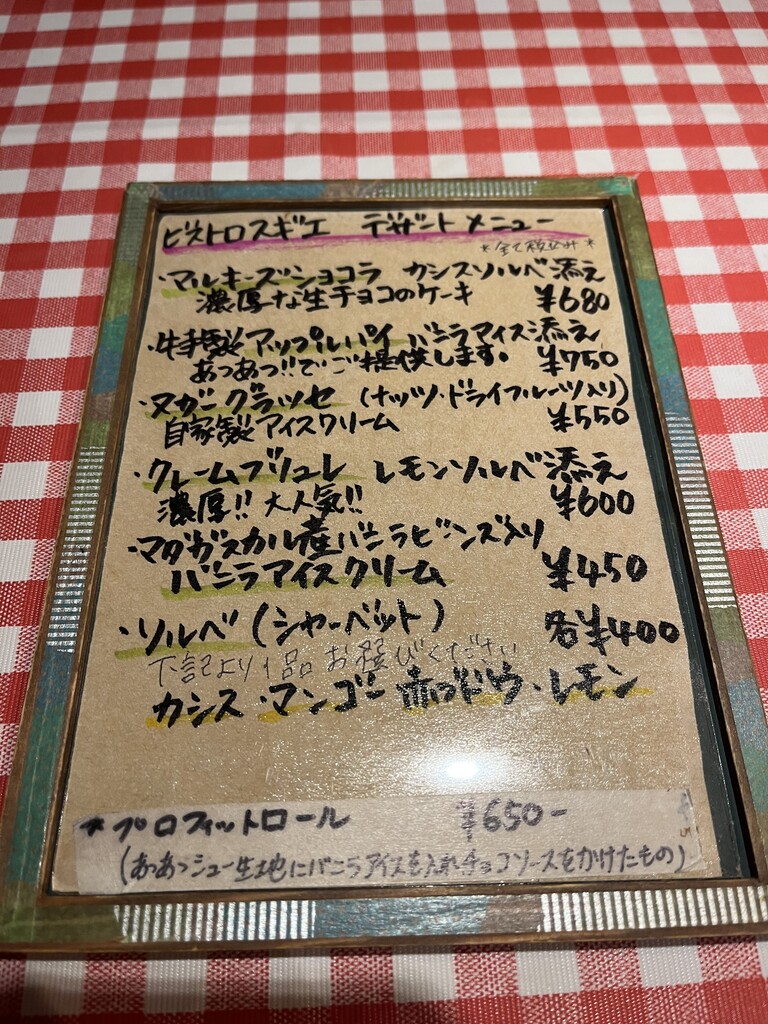 ビストロスギエ デザートメニュー
*全て税込み*
・マルキーズショコラ カシスソルベ添え
濃厚な生チョコのケーキ ¥680
・特製アップルパイ バニラアイス添え
あつあつ!!でご提供します。 ¥750
・ヌガーグラッセ (ナッツ・ドライフルーツ入り)
自家製アイスクリーム ¥550
・クレームブリュレ レモンソルベ添え
濃厚!! 大人気!! ¥600
・マダガスカル産バニラビーンズ入り
バニラアイスクリーム ¥450
・ソルベ (シャーベット) 各¥400
下記より1品お選びください
カシス・マンゴー 赤ブドウ・レモン
*プロフィットロール ¥650-
(あつあつシュー生地にバニラアイスを入れチョコソースをかけたもの)